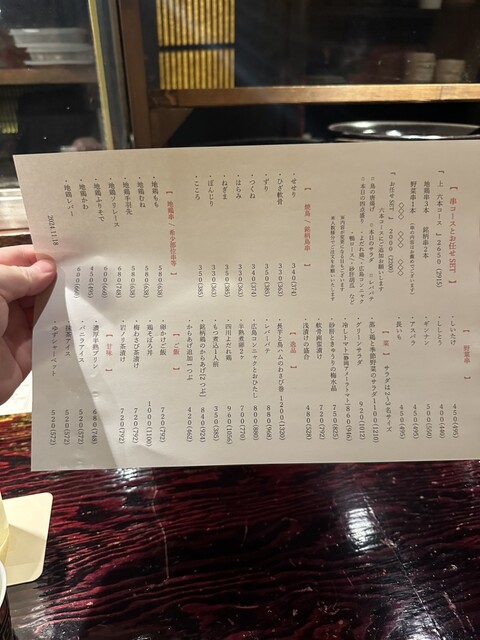 【 串コースとお任せSET 】
『 上　六本コース 』2650(2915)
地鶏串2本　銘柄串2本
野菜串1本
『お任せSET』 2000(2200)
六本コースにご追加お願いします
○鳥の唐揚げ
○本日のサラダ　○レバパテ
○本日の四皿盛り
【 焼鳥／銘柄鳥串 】
・せせり 340(374)
・ひざ軟骨 330(363)
・ずり 350(385)
・つくね 340(374)
・はらみ 330(363)
・ねぎま 350(385)
・ぼんじり 330(363)
・こころ 350(385)
【 地鶏串／希少部位串 】
・地鶏もも 580(638)
・地鶏むね 580(638)
・地鶏手羽先
・地鶏ソリレース 680(748)
・地鶏ふりそで 600(660)
・地鶏かわ 450(495)
・地鶏レバー 600(660)
2024.11.18
【 野菜串 】
・しいたけ 450(495)
・ししとう 400(440)
・ギンナン 500(550)
・アスパラ 450(495)
・長いも 450(495)
【 菜 】　サラダは2〜3名サイズ
・蒸し鶏と季節野菜のサラダ 1100(1210)
・グリーンサラダ 920(1012)
・冷しトマト(静岡アイコトマト) 860(946)
・砂肝ときゅうりの梅水晶 750(825)
・軟骨南蛮漬け 720(792)
・浅漬けの盛り 480(528)
【 逸品 】
・推す！鳥ハムのわさび巻 1200(1320)
・レバーパテ 880(968)
・広島コンニャクとおひたし 800(880)
・半熟煮卵2ヶ 700(770)
・四川よだれ鶏 960(1056)
・もつ煮込1人前 350(385)
・銘柄鶏のからあげ【2つ〜】 840(924)
・からあげ追加一つぶ 420(462)
【 ご飯 】
・卵かけご飯 720(792)
・鶏そぼろ丼 1000(1100)
・梅わさび茶漬け 720(792)
・岩ノリ茶漬け 720(792)
【 甘味 】
・濃厚半熟プリン 680(748)
・抹茶アイス 520(572)
・バニラアイス 520(572)
・ゆずシャーベット 520(572)